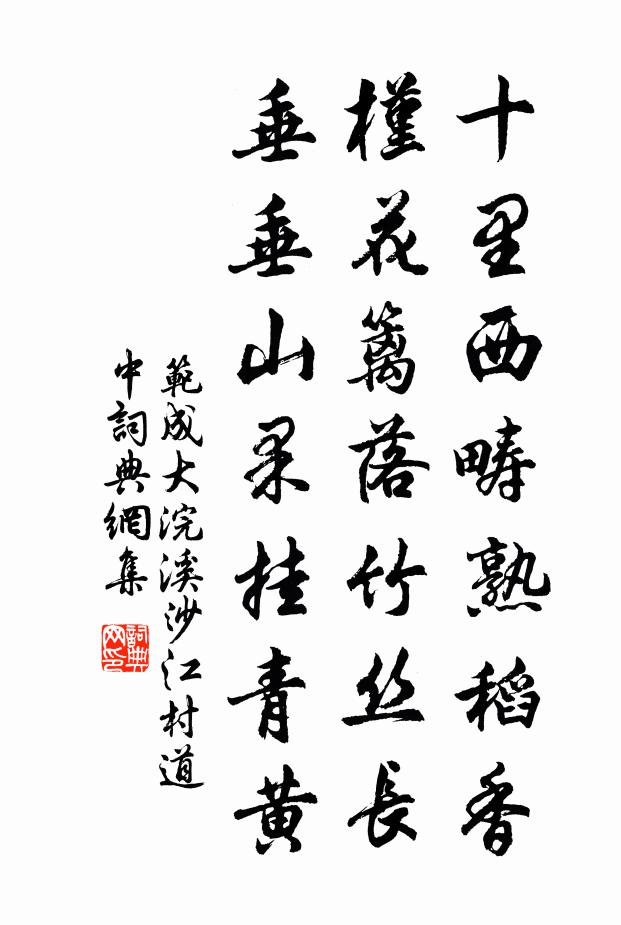 十里西疇熟稻香
槿花籬落竹丝長
垂垂山果挂青黃
範成大浣溪沙江村道
中詞典網集
詞典网印